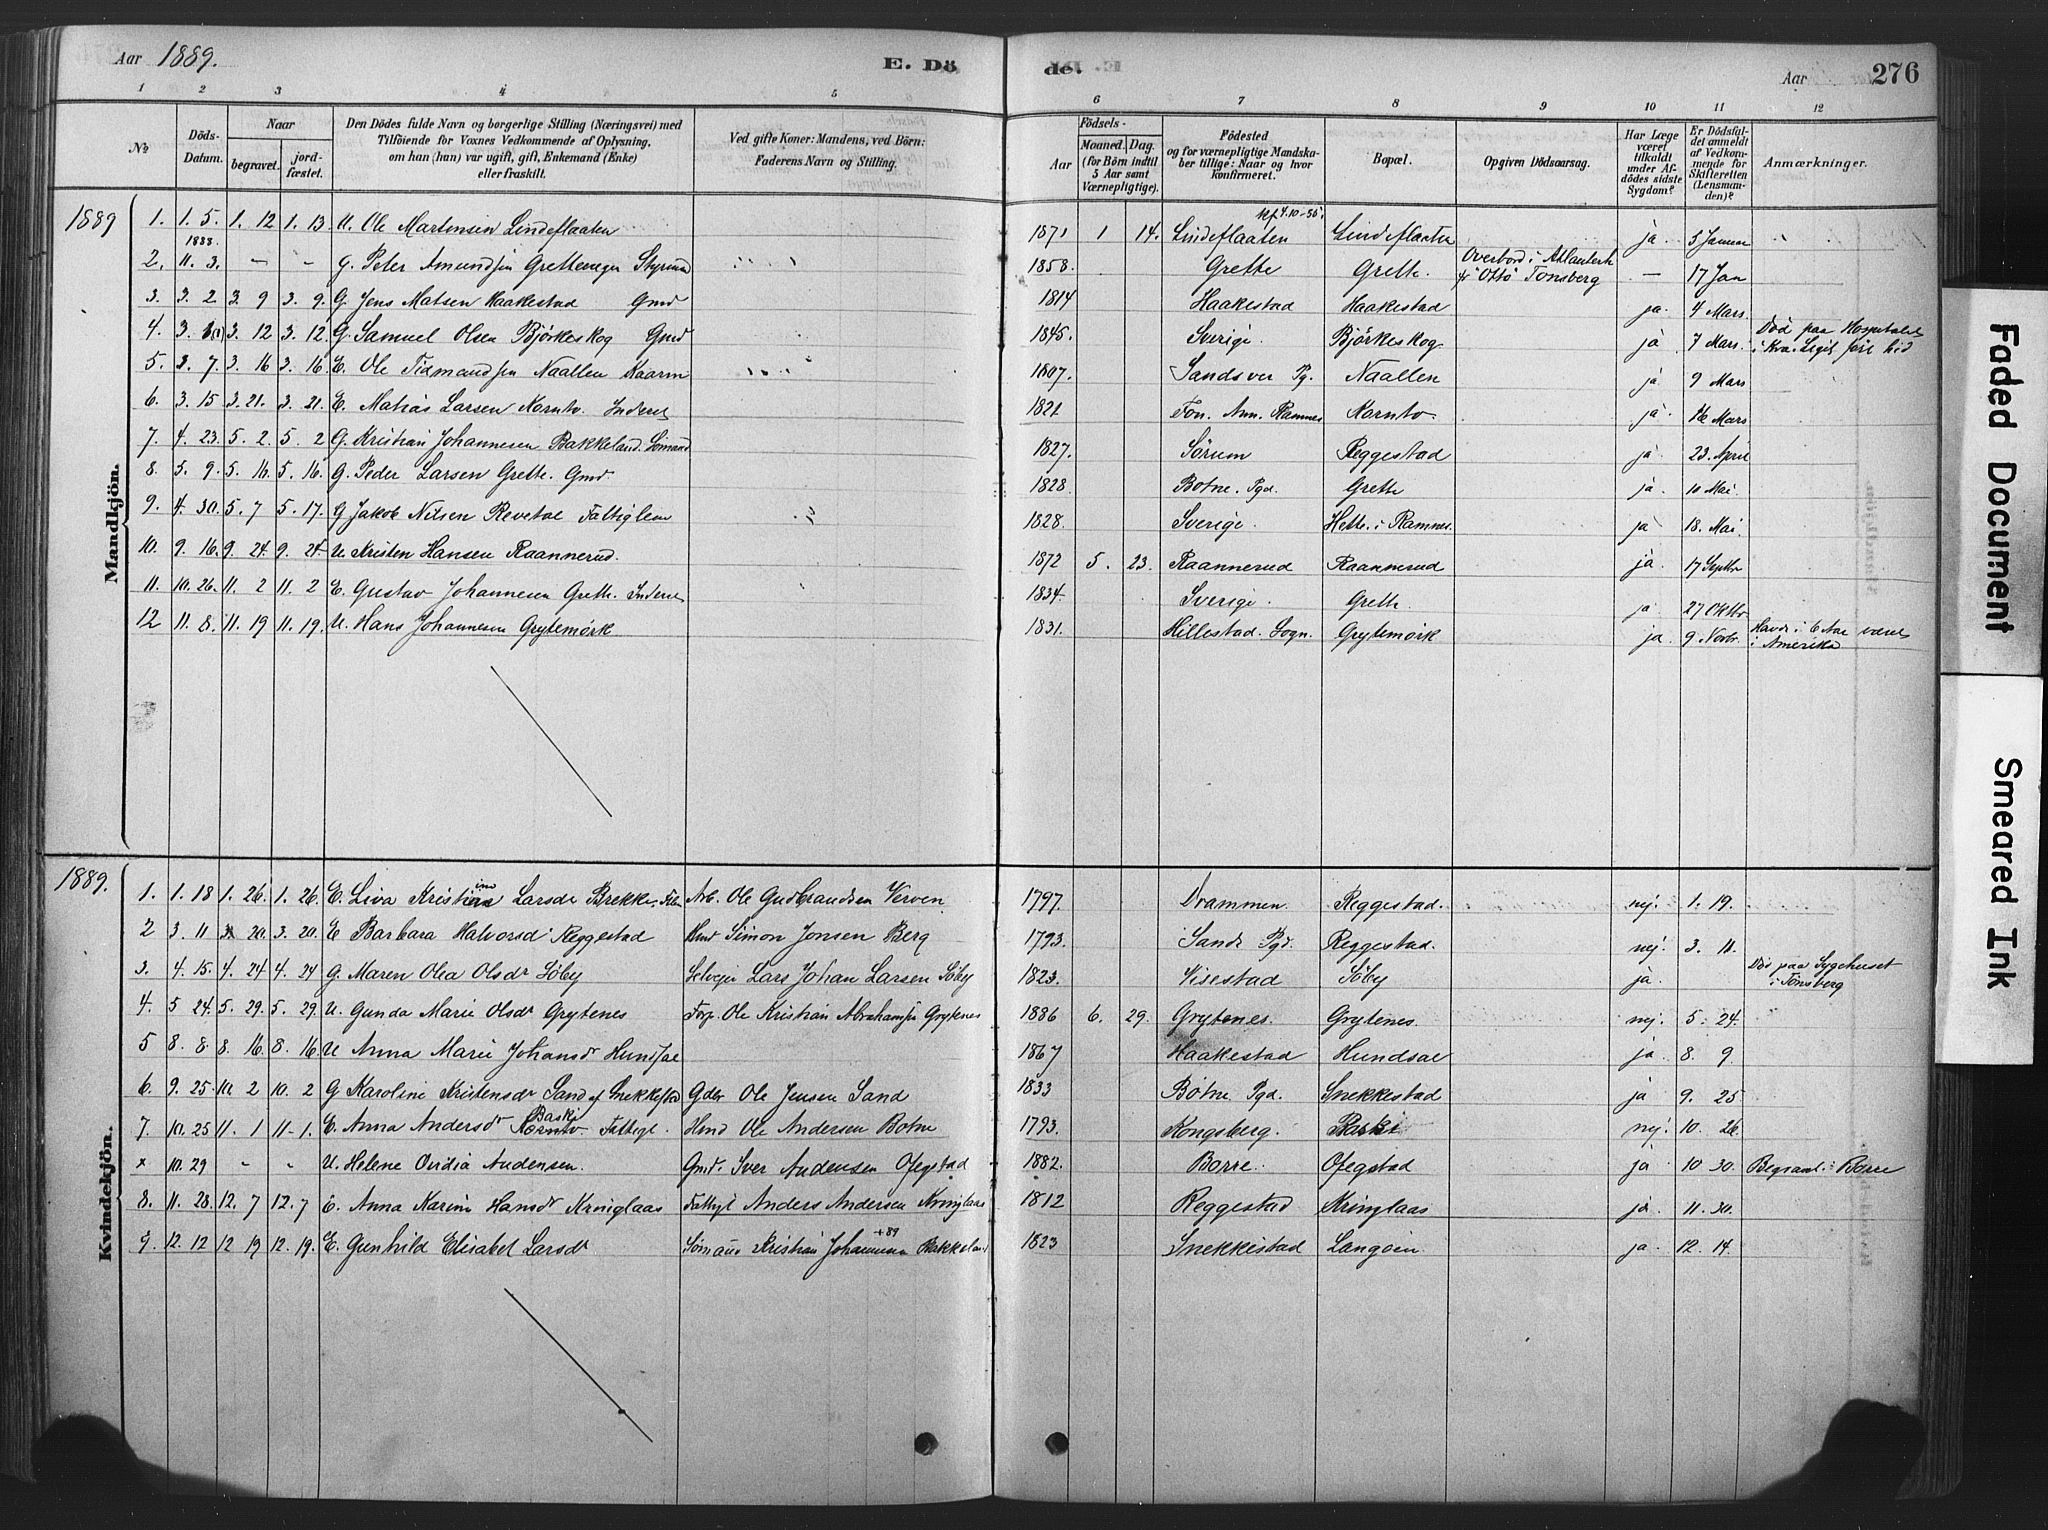 Aar 1889. E. Dö
de. Aar 276
1 2 3 4 5 6 7 8 9 10 11 12
№ Döds-Datum. Naar begravet. jord-fæstet. Den Dödes fulde Navn og borgerlige Stilling (Næringsvei) med Tilföiende for Voxnes Vedkommende af Oplysning, om han (hun) var ugift, gift, Enkemand (Enke) eller fraskilt. Ved gifte Koner: Mandens, ved Börn: Faderens Navn og Stilling. Födsels- Aar Maaned. Dag. (for Börn indtil 5 Aar samt Værnepligtige). Födested og for værnepligtige Mandskaber tillige: Naar og hvor konfirmeret. Bopæl. Opgiven Dödsaarsag. Har Læge været tilkaldt under Afdödes sidste Sygdom? Er Dödsfaldet anmeldt af Vedkommende for Skifteretten (Lensmanden)? Anmærkninger.
1889
Mandkjön.
1. 1. 5. 1. 12 1. 13 U. Ole Martinsen Lindeflaaten 1871 1 14. Lindeflaaten Lindeflaaten ja. 5 Januar
2. 11. 3. — — g. Peter Amundsen Gretteneger Styrmd 1858. Grette Grette. Overbord i Atlanterh. "Otto" Tönsberg — 17 Jan
3. 3. 2 3. 9 3. 9. G. Jens Matsen Haakestad Gmd 1814 Haakestad Haakestad ja. 4 Mars.
4. 3. 3. 12 3. 12. G. Samuel Olsen Bjørkeskog Gmd 1845. Sverige. Bjørkeskog ja 7 Mars. Död paa Hospitalet
5. 3. 7. 3. 16 3. 16. E. Ole Tidmandsen Naallen Kaarm 1807. Sandsver Pg. Naallen ja 9 Mars
6. 3. 15 3. 21. 3. 21. E. Matias Larsen Kornto. Inderst 1821 Ramnes Kornto. ja. 16 Mars
7. 4. 23. 5. 2. 5. 2 G. Kristian Johannesen Bakkeland. Sömand 1827. Sörum Reggestad ja. 23. April
8. 5. 9. 5. 16. 5. 16. G. Peder Larsen Grette. Gmd. 1828. Botne. Pgd. Grette ja. 10 Mai.
9. 4. 30. 5. 7 5. 17. G Jakob Nilsen Revetal Fattiglem 1828. Sverige. Hette. i Ramnes. ja 18. Mai.
10. 9. 16. 9. 24. 9. 24. U. Kristen Hansen Raannerud. 1872 5. 23. Raannerud Raannerud ja. 17 Septbr
11. 10. 26. 11. 2 11. 2 E. Gustav Johannesen Grette. Inderst 1834. Sverige. Grette. ja. 27 Oktbr
12 11. 8. 11. 19 11. 19. U. Hans Johannesen Grytemørk 1831. Hillestad. Sogn. Grytemørk ja. 9 Novbr. Havde i 6 Aar været i Amerika
1889.
Kvindekjön.
1. 1. 18 1. 26. 1. 26. E. Liva Kristine Larsdr Brekke. Arb. Ole Gudbrandsen Verven. 1797. Drammen. Reggestad. nej. 1. 19.
2 3. 11 20. 3. 20. E Barbara Halvorsd Reggestad Hmd Simon Jonsen Berg 1793. Sande Pgd. Reggestad. nej. 3. 11.
3. 4. 15. 4. 24 4. 24 g. Maren Olea Olsdr Söby Selveje Lars Johan Larsen Söby 1823. Visestad Söby ja. Död paa Sygehuset i Tönsberg
4. 5 24. 5. 29 5. 29 U. Gunda Marie Olsdr Grytenes Forp. Ole Kristian Abrahamsen Grytenes 1886 6. 29. Grytenes. Grytenes. nej. 5. 24.
5 8. 8. 8. 16. 8. 16 U Anna Marie Johansdr Hundsal 1867 Haakestad Hundsal ja. 8. 9.
6. 9. 25. 10. 2 10. 2 G Karoline Kristensdr Sand af Snekkestad Gder Ole Jensen Sand 1833 Botne Pgd. Snekkestad ja 9. 25
7. 10. 25 11. 1 11-1. E. Anna Andersdr Baski Fattigl. Hmd Ole Andersen Botne 1793. Kongsberg. Baski nej. 10. 26.
× 10. 29 " " U. Helene Ovidia Andensen. Gmd. Iver Andensen Ofegstad 1882. Borre. Ofegstad ja 10 30. Begravet i Borre
8. 11. 28. 12. 7 12. 7 E. Anna Karine Hansdr Kringlaas Fattigl Anders Andersen Kringlaas 1812 Reggestad Kringlaas ja. 11. 30.
9. 12. 12 12 19 12. 19. E. Gunhild Elisabet Larsdr Sömand Kristian Johannesen +89 Bakkeland 1823 Snekkestad Langöen ja. 12. 14.
Faded Document
Smeared Ink